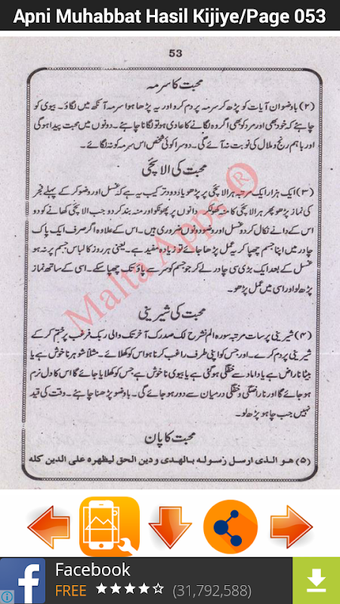 Apni Muhabbat Hasil Kijiye/Page 053
53
محبت کا سرمہ
(۲) باوضو ان آیات کو پڑھ کر سرمہ پر دم کرو اور یہ پڑھا ہوا سرمہ آنکھ میں لگاؤ۔ بیوی کو
چاہئے کہ خود بھی اور مرد کو بھی اگر وہ لگانے کا عادی ہو تو لگانا چاہئے۔ دونوں میں محبت پیدا ہوگی
اور باہم رنج و ملال کی نوبت نہ آئے گی۔ دوسرا کوئی شخص اس سرمہ کو نہ لگائے۔
محبت کی الائچی
(۳) ایک ہزار ایک مرتبہ ہر الائچی پر پڑھو یا ودود ترکیب یہ ہے کہ غسل اور وضو کر کے پہلے فجر
کی نماز پڑھو پھر ہر الائچی کا منہ کھول کر دانوں پر پھونکو اور منہ بند کر دو جب الائچی کھانے کو دو
اس کے دانے نکال کر دو غسل اور وضو دونوں ضروری ہیں۔ اس کے علاوہ اگر صرف ایک پاک
چادر میں اپنا جسم چھپا کر یہ عمل پڑھا جائے تو زیادہ مفید ہے۔ یعنی ہر روز کا لباس جسم پر نہ ہو
غسل کے بعد ایک بڑی سی چادر لے کر جو جسم کو سر سے پاؤں تک چھپا سکے۔ اسی کے ساتھ نماز
پڑھ لو اور اسی میں عمل پڑھو۔
محبت کی شیرینی
(۴) شیرینی پر سات مرتبہ سورہ الم نشرح لک صدرک آخر تک والی ربک فرغب پر ختم کر کے
شیرینی پر دم کرے۔ اور جس کو اپنی طرف راغب کرنا ہو اس کو کھلائے۔ مثلا شوہر ناخوش ہے یا
بیٹا ناراض ہے یا داماد سے خفگی ہو گئی ہے یا بیوی ناخوش ہے جس کو کھلایا جائے گا اس کا دل نرم
ہو جائے گا اور ناراضگی و خفگی درمیان سے دور ہو جائے گی۔ باوضو پڑھنا چاہئے۔ وقت کی قید
نہیں جب چاہو پڑھ لو۔
محبت کا پان
(۵) هو الذى ارسل رسوله بالهدى ودين الحق ليظهره على الدين كله
Malta Apps ®
Facebook
FREE (31,792,588)